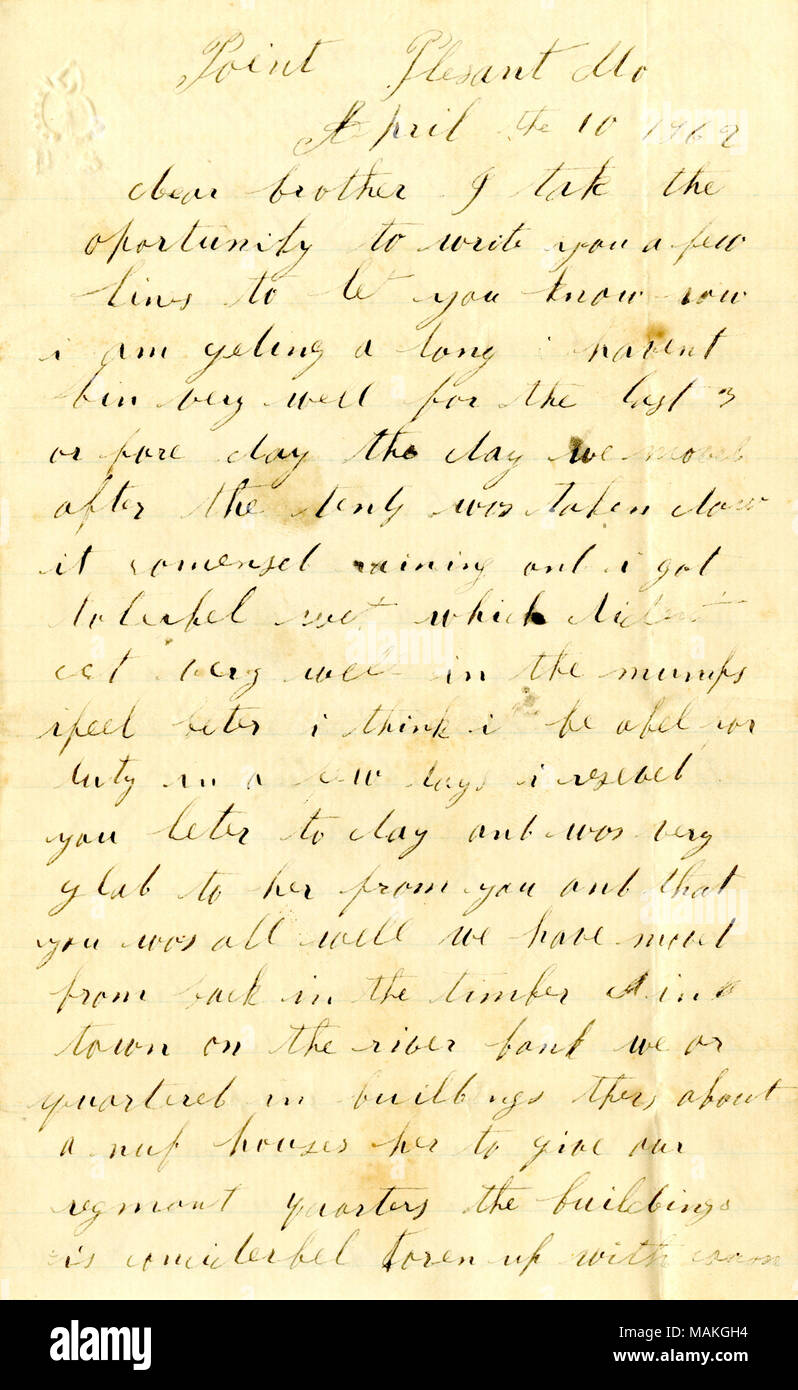 Point Plesant Mo
April the 10 1862
dear brother I tak the
oportunity to write you a few
lines to let you know how
i am geting a long i havent
bin very well for the last 3
or fore day the day we moved
after the tents was taken down
it comensed raining and i got
tolerbel wet which didnt
set very well in the mumps
i feel beter i think i be abel for
duty in a few days i reseved
you leter to day and was very
glad to her from you and that
you was all well we have moved
from back in the timber in a
town on the river bank we ar
quartered in buildings thers about
a nuf houses her to give our
regment quarters the buildings
is conciderbel toren up with canon
alamy
Image ID: MAKGH4
www.alamy.com